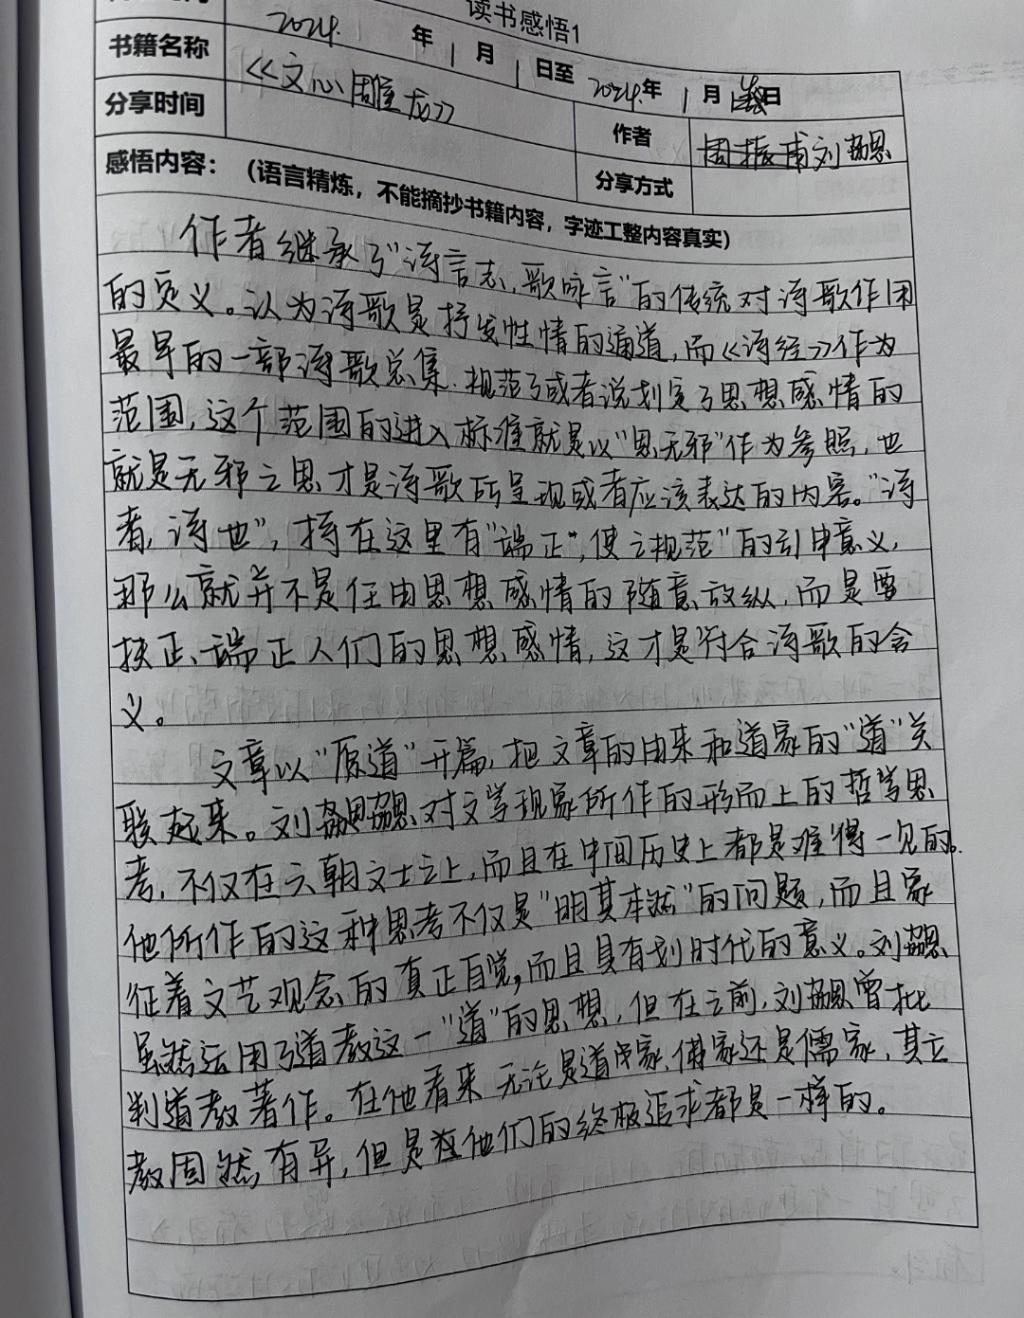 读书感悟1
2024.年1月1日至2024.年1月日
书籍名称 《文心雕龙》 作者 周振甫刘勰
分享时间 分享方式
感悟内容：（语言精炼，不能摘抄书籍内容，字迹工整内容真实）
作者继承了"诗言志，歌咏言"的传统对诗歌作团
的定义。认为诗歌是抒发性情的通道，而《诗经》作为
最早的一部诗歌总集.规范了或者说划定了思想感情的
范围，这个范围的进入标准就是以"思无邪"作为参照，也
就是无邪之思才是诗歌所呈现或者应该表达的内容。"诗
者，诗也"，持在这里有"端正"，使之规范"的引申意义，
那么就并不是任由思想感情的随意放纵，而是要
扶正、端正人们的思想感情，这才是符合诗歌的含
义。
文章以"原道"开篇，把文章的由来和道家的"道"关
联起来。刘勰勰对文学现象所作的形而上的哲学思
考，不仅在六朝文士之上，而且在中国历史上都是难得一见的。
他所作的这种思考不仅是"明其本然"的问题，而且象
征着文艺观念的真正自觉，而且具有划时代的意义。刘勰
虽然运用了道教这一"道"的思想，但在之前，刘勰曾批
判道教著作。在他看来无论是道家、佛家还是儒家，其立
教固然有异，但是在他们的终极追求都是一样的。